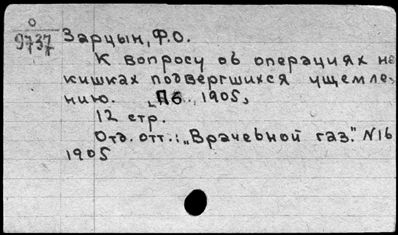 О
9737
Зарцын, Ф.О.
К вопросу об операциях на
кишках подвергшихся ущемле-
нию. „Пб., 1905,
12 стр.
Отд. отт.: „Врачебной газ." N16
1905